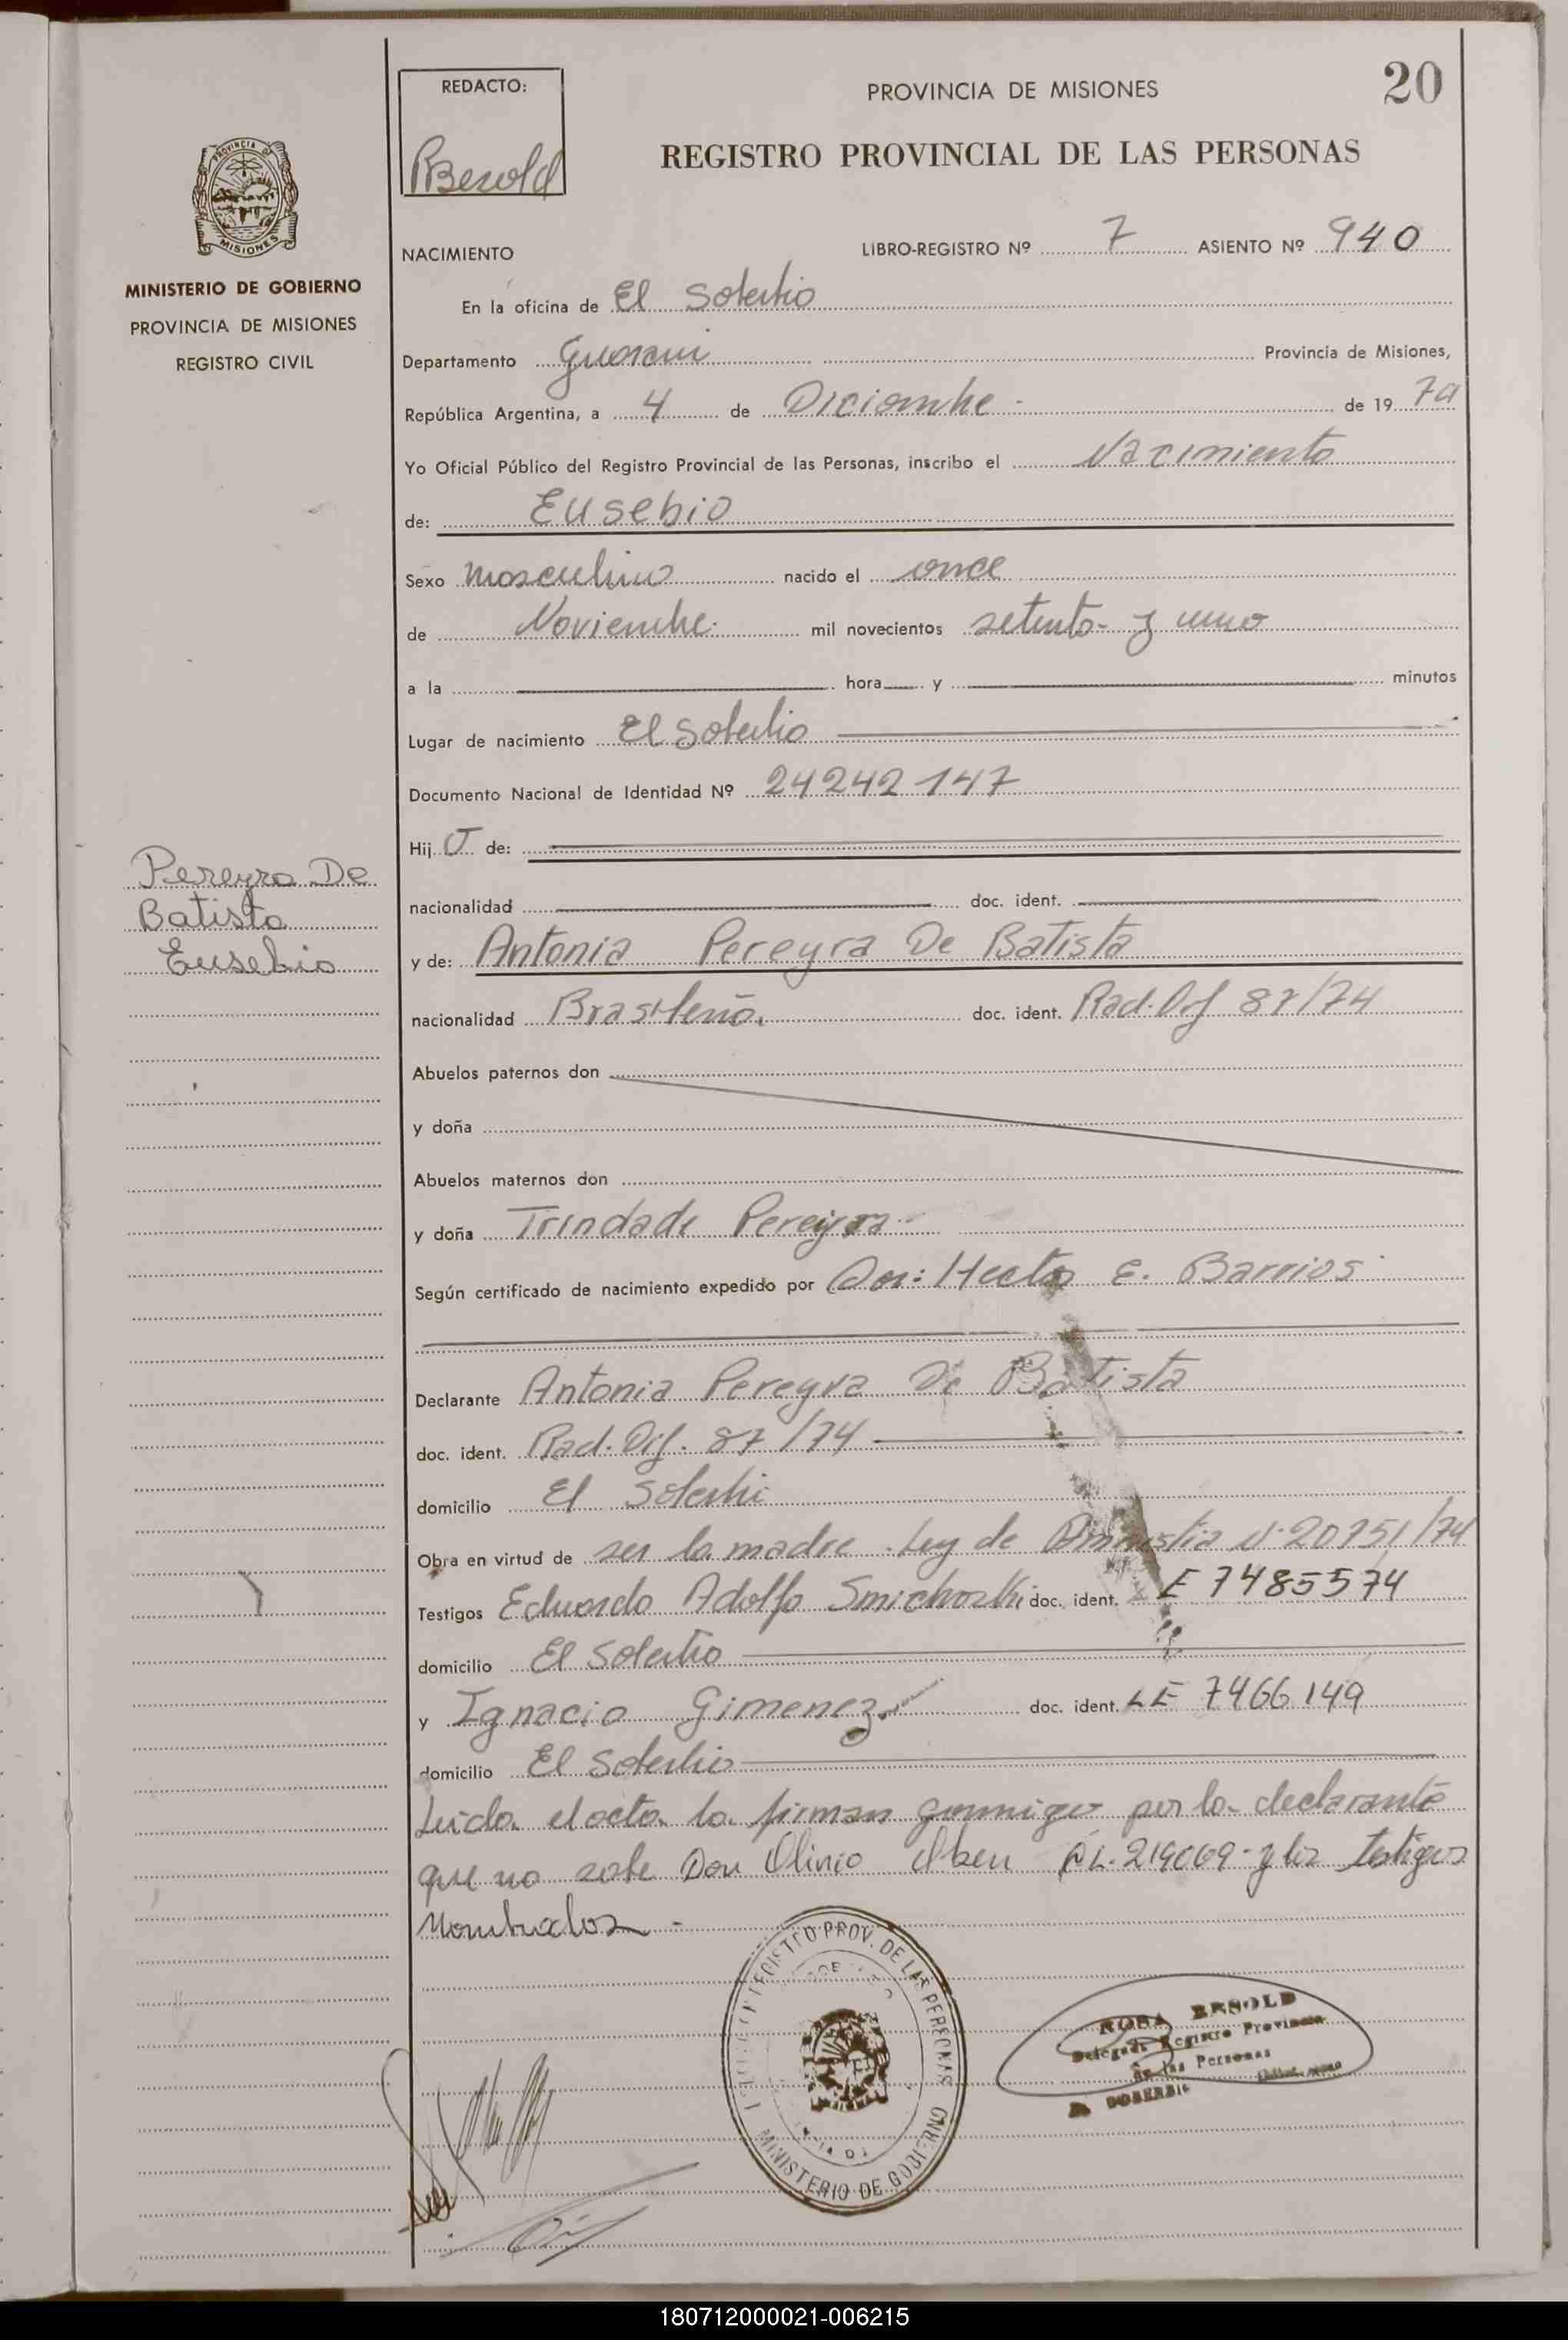 20
REDACTO:
PROVINCIA DE MISIONES
RBesold
REGISTRO PROVINCIAL DE LAS PERSONAS
PROVINCIA DE
MISIONES
MINISTERIO DE GOBIERNO
PROVINCIA DE MISIONES
REGISTRO CIVIL
NACIMIENTO
LIBRO-REGISTRO Nº 7 ASIENTO Nº 940
En la oficina de El Soberbio
Departamento Guarani Provincia de Misiones,
República Argentina, a 4 de Diciembre de 19 74
Yo Oficial Público del Registro Provincial de las Personas, inscribo el Nacimiento
de: Eusebio
Sexo masculino nacido el once
de Noviembre mil novecientos setenta y uno
a la hora y minutos
Lugar de nacimiento El Soberbio
Documento Nacional de Identidad Nº 24242147
Hij o de:
Pereyra De
Batista
Eusebio
nacionalidad doc. ident.
y de: Antonia Pereyra De Batista
nacionalidad Brasileña. doc. ident. Rad. Dif 87/74
Abuelos paternos don
y doña
Abuelos maternos don
y doña Trindade Pereyra
Según certificado de nacimiento expedido por Dor: Hector E. Barrios
Declarante Antonia Pereyra De Batista
doc. ident. Rad. Dif. 87/74
domicilio El Soberbi
Obra en virtud de ser la madre. Ley de Amnistia Nº 20751/74
Testigos Eduardo Adolfo Smichoski doc. ident. LE 7485574
domicilio El Soberbio
y Ignacio Gimenez doc. ident. LE 7466149
domicilio El Soberbio
Leida el acta la firman conmigo por la declarante
que no sabe Don Olinio 219069 y los testigos
Nombrados -
REGISTRO PROV. DE LAS PERSONAS
MINISTERIO DE GOBIERNO
ROSA BESOLD
Delegada Registro Provincial
de las Personas
EL SOBERBIO
180712000021-006215